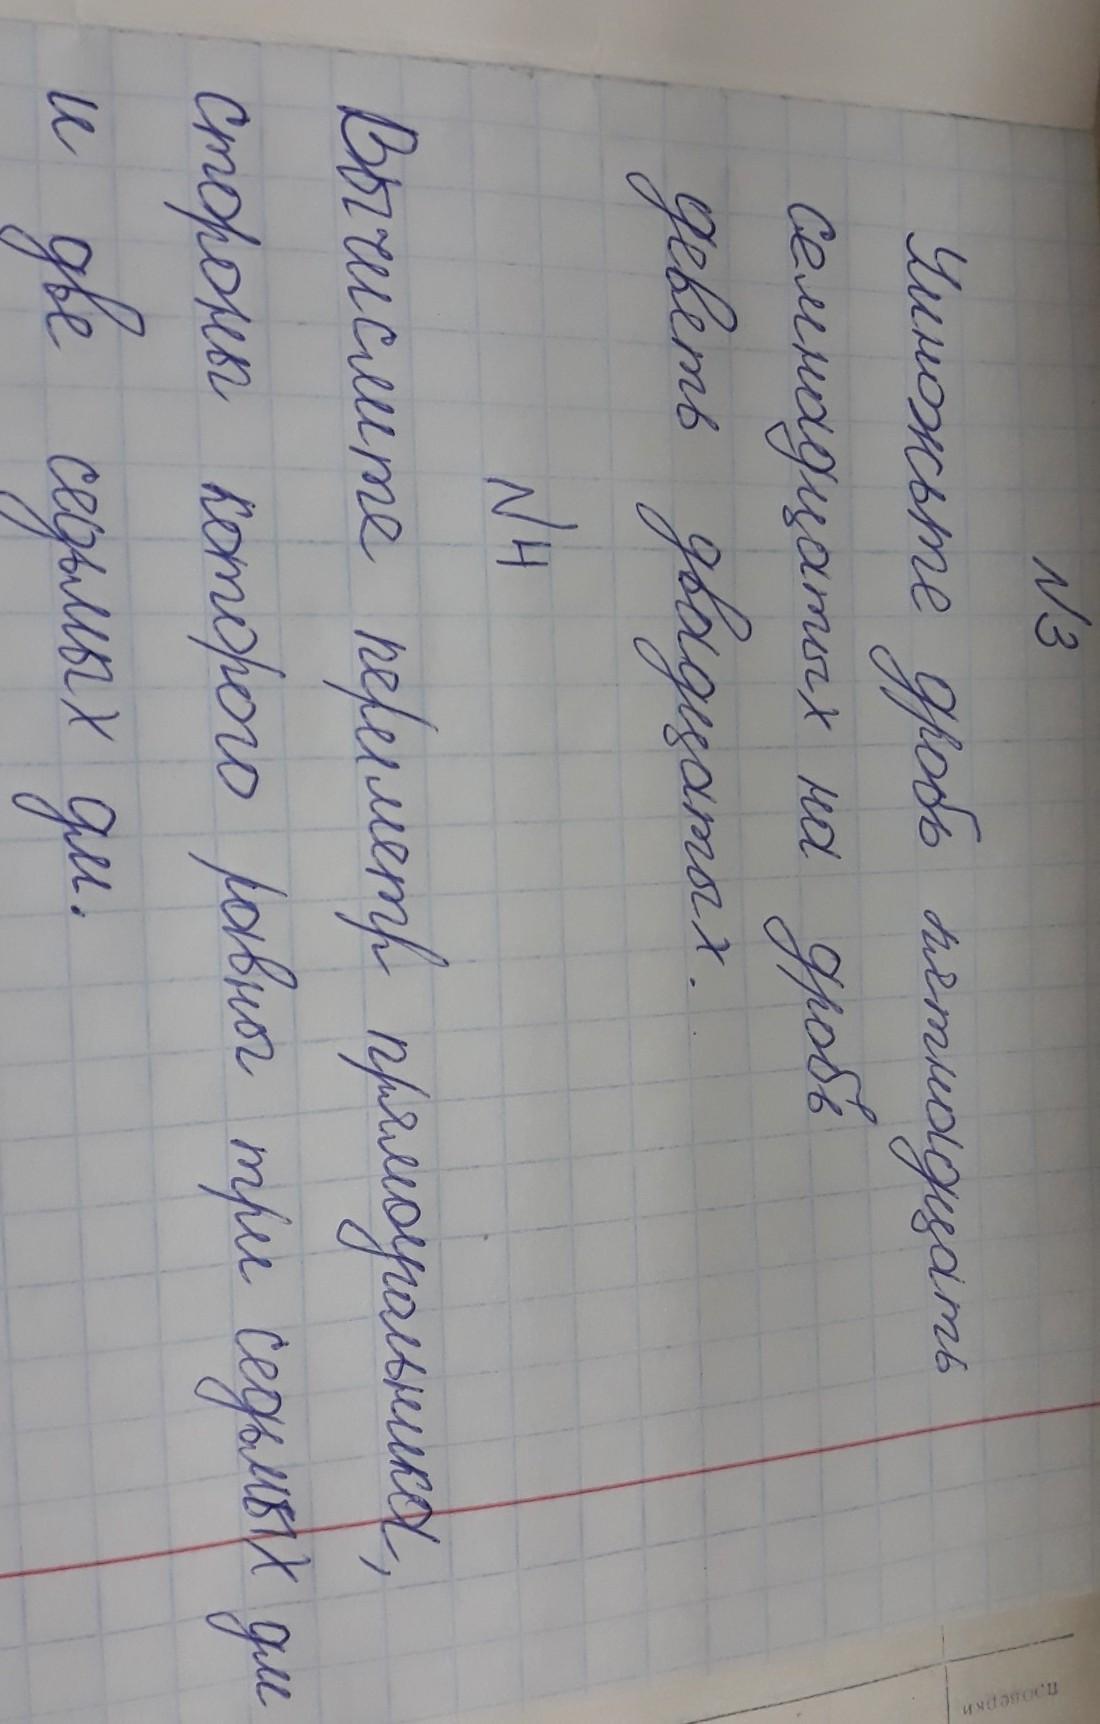 №3
Умножьте дробь пятнадцать
семнадцатых на дробь
девять двадцатых.
№4
Вычислите периметр прямоугольника,
стороны которого равны три седьмых дм
и две седьмых дм.
проверки